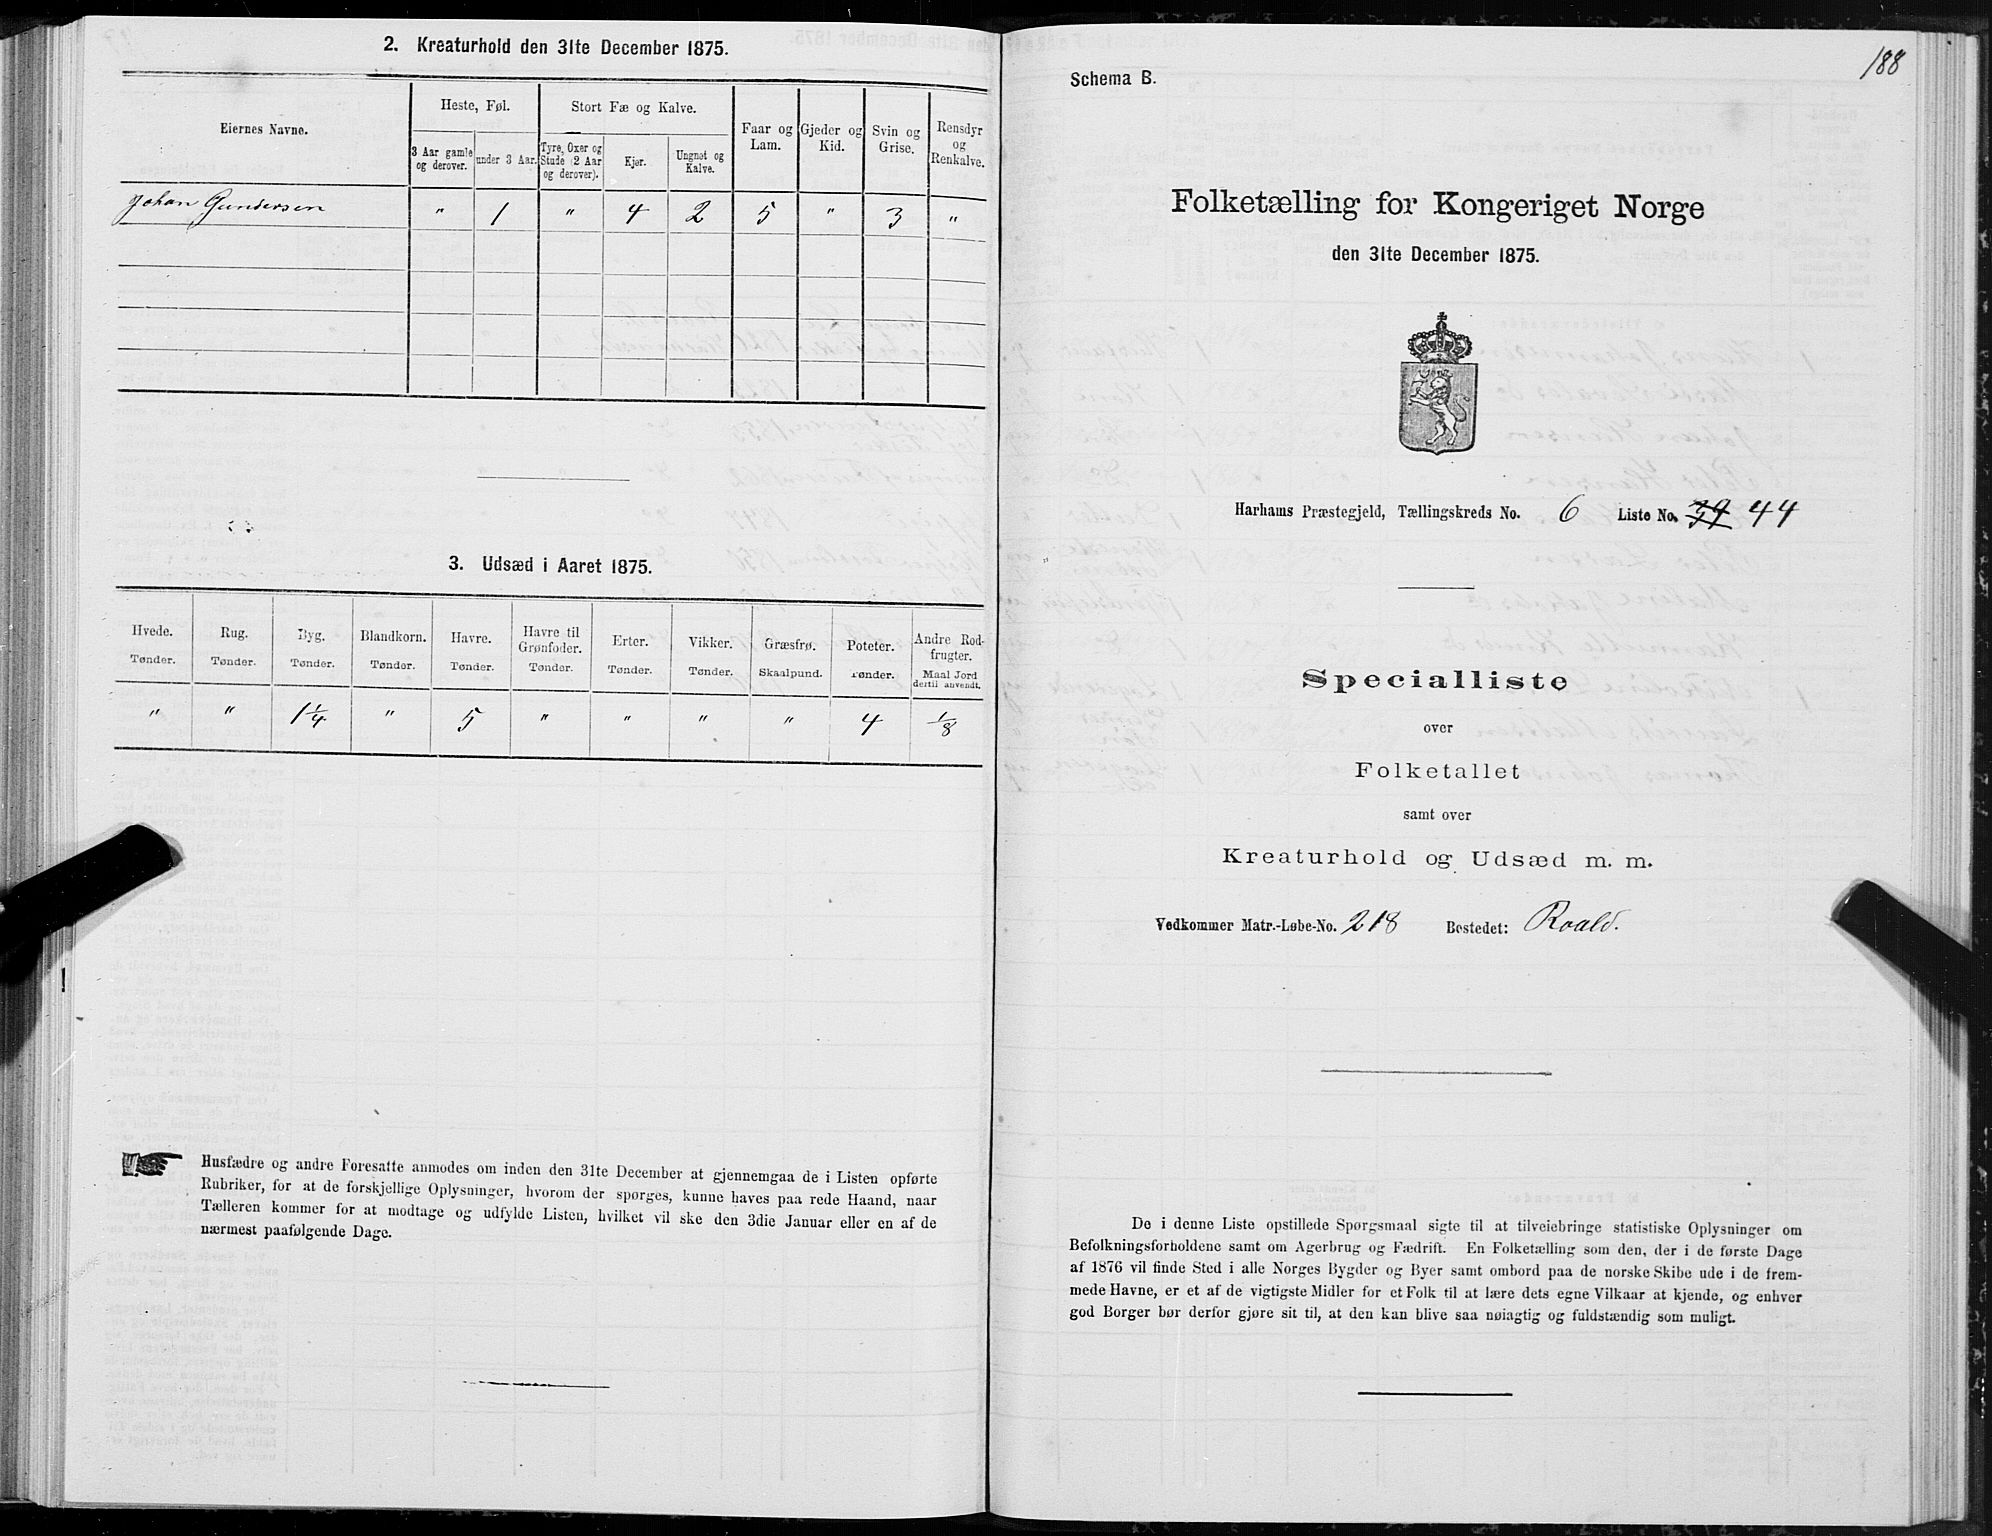 2. Kreaturhold den 31te December 1875.
Eiernes Navne.
Heste, Føl.
Stort Fæ og Kalve.
Faar og Lam.
Gjeder og Kid.
Svin og Grise.
Rensdyr og Renkalve.
3 Aar gamle og derover.
under 3 Aar.
Tyre, Oxer og Stude (2 Aar og derover).
Kjør.
Ungnøt og Kalve.
Johan Gundersen " 1 " 4 2 5 " 3 "
3. Udsæd i Aaret 1875.
Hvede. Rug. Byg. Blandkorn. Havre. Havre til Grønfoder. Erter. Vikker. Græsfrø. Poteter. Andre Rodfrugter.
Tønder. Tønder. Tønder. Tønder. Tønder. Tønder. Tønder. Tønder. Skaalpund. Tønder. Maal Jord dertil anvendt.
" " 1 1/4 " 5 " " " " 4 1/8
Husfædre og andre Foresatte anmodes om inden den 31te December at gjennemgaa de i Listen opførte
Rubriker, for at de forskjellige Oplysninger, hvorom der spørges, kunne haves paa rede Haand, naar
Tælleren kommer for at modtage og udfylde Listen, hvilket vil ske den 3die Januar eller en af de
nærmest paafølgende Dage.
188
Schema B.
Folketælling for Kongeriget Norge
den 31te December 1875.
Harhams Præstegjeld, Tællingskreds No. 6 Liste No. 39 44
Specialliste
over
Folketallet
samt over
Kreaturhold og Udsæd m. m.
Vedkommer Matr.-Løbe-No. 218 Bostedet: Roald.
De i denne Liste opstillede Spørgsmaal sigte til at tilveiebringe statistiske Oplysninger om
Befolkningsforholdene samt om Agerbrug og Fædrift. En Folketælling som den, der i de første Dage
af 1876 vil finde Sted i alle Norges Bygder og Byer samt ombord paa de norske Skibe ude i de frem-
mede Havne, er et af de vigtigste Midler for et Folk til at lære dets egne Vilkaar at kjende, og enhver
god Borger bør derfor gjøre sit til, at den kan blive saa nøiagtig og fuldstændig som muligt.